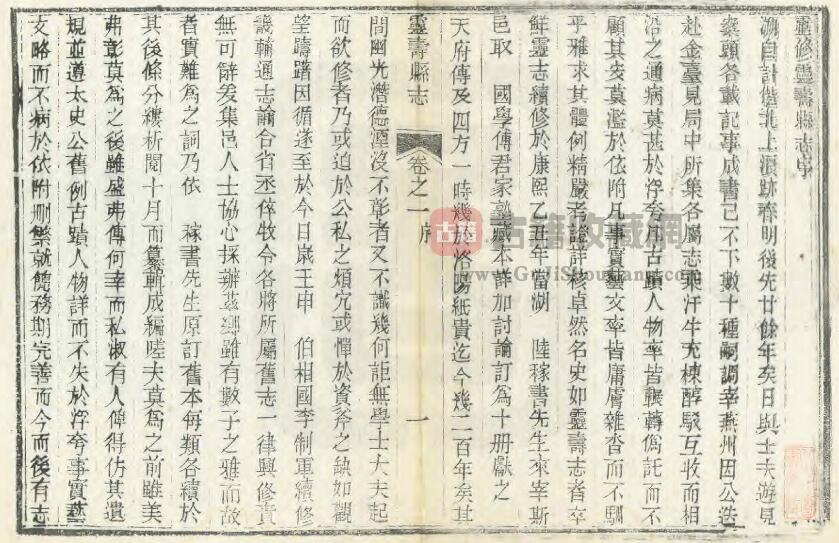 重修靈壽縣志序
湖自計偕北上浪跡聯明後先廿餘年矣日與士夫遊見
案頭各載記事成書已不下數十種嗣調宰燕州因公迭
赴金臺見局中所集各屬志乘汗牛充棟醇駁互收而相
沿之通病莫甚於浮夸凡古蹟人物率皆輾轉僞託而不
顧其安莫濫於依附凡事實藝文率皆庸膚雜沓而不馴
乎雅求其體例精嚴考證詳核卓然名史如靈壽志者卒
鮮靈志續修於康熙乙丑年當湖 陸稼書先生來宰斯
邑取 國學傅君家塾藏本詳加討論訂為十册獻之
天府傳及四方一時幾於洛陽紙貴迄今幾二百年矣其
靈壽縣志 卷之一 序 一
間幽光潛德湮沒不彰者又不識幾何詎無學士大夫起
而欲修者乃或迫於公私之煩宂或憚於資斧之缺如觀
望躊躇因循遂至於今日歲壬申 伯相國李制軍續修
畿輔通志諭合省丞倅牧令各將所屬舊志一律興修責
無可辭爰集邑人士協心採辦蕞鄉雖有數子之雅而故
者實難為之詞乃依 稼書先生原訂舊本每類各續於
其後條分縷析閱十月而纂輯成編嗟夫莫為之前雖美
弗彰莫為之後雖盛弗傳何幸而私淑有人俾得仿其遺
規並遵太史公舊例古蹟人物詳而不失於浮夸事實藝
文略而不病於依附刪繁就簡務期完善而今而後有志
古籍收藏网
www.GuJiShouCang.com